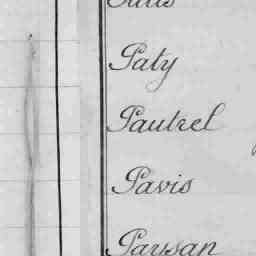 Paty
Pautrel
Pavis
Paysan